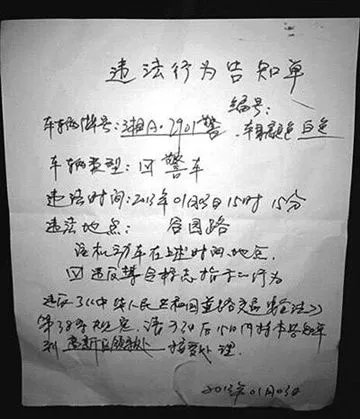 违法行为告知单
编号:
车辆牌号:湘A·2901警 车身颜色 白色
车辆类型:囗警车
违法时间:2013年01月03日15时15分
违法地点: 谷园路
该机动车在上述时间、地点,
违反禁令标志指示行为
违反了《中华人民共和国道路交通安全法》
第38条规定,请于30后15日内持本告知单
到 高新区领秘处 接受处理。
2013年01月03日